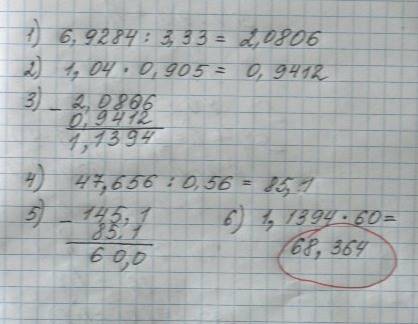 1) 6,9284 : 3,33 = 2,0806
2) 1,04 · 0,905 = 0,9412
3) - 2,0806
0,9412
1,1394
4) 47,656 : 0,56 = 85,1
5) - 145,1
85,1
60,0
6) 1,1394 · 60 =
68,364